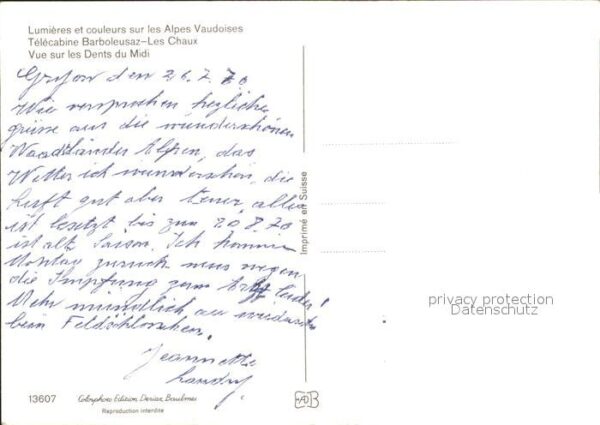 Lumières et couleurs sur les Alpes Vaudoises
Télécabine Barboleusaz-Les Chaux
Vue sur les Dents du Midi
Gryon den 26.7.70
Wie versprochen herzliche
grüsse aus die wunderschönen
Waadtländer Alpen, das
Wetter ich wunderschön, die
luft gut aber teuer, alles
ist besetzt bis zum 20.8.70
ist alt Saison. Ich komme
Montag zurück muss wegen
die Impfung zum leider!
Mehr mündlich au
beim Feldschlösschen.
Jeannette
Landry
Imprimé en Suisse
privacy protection
Datenschutz
13607
Colorphoto Edition Deriaz Baulmes
Reproduction interdite